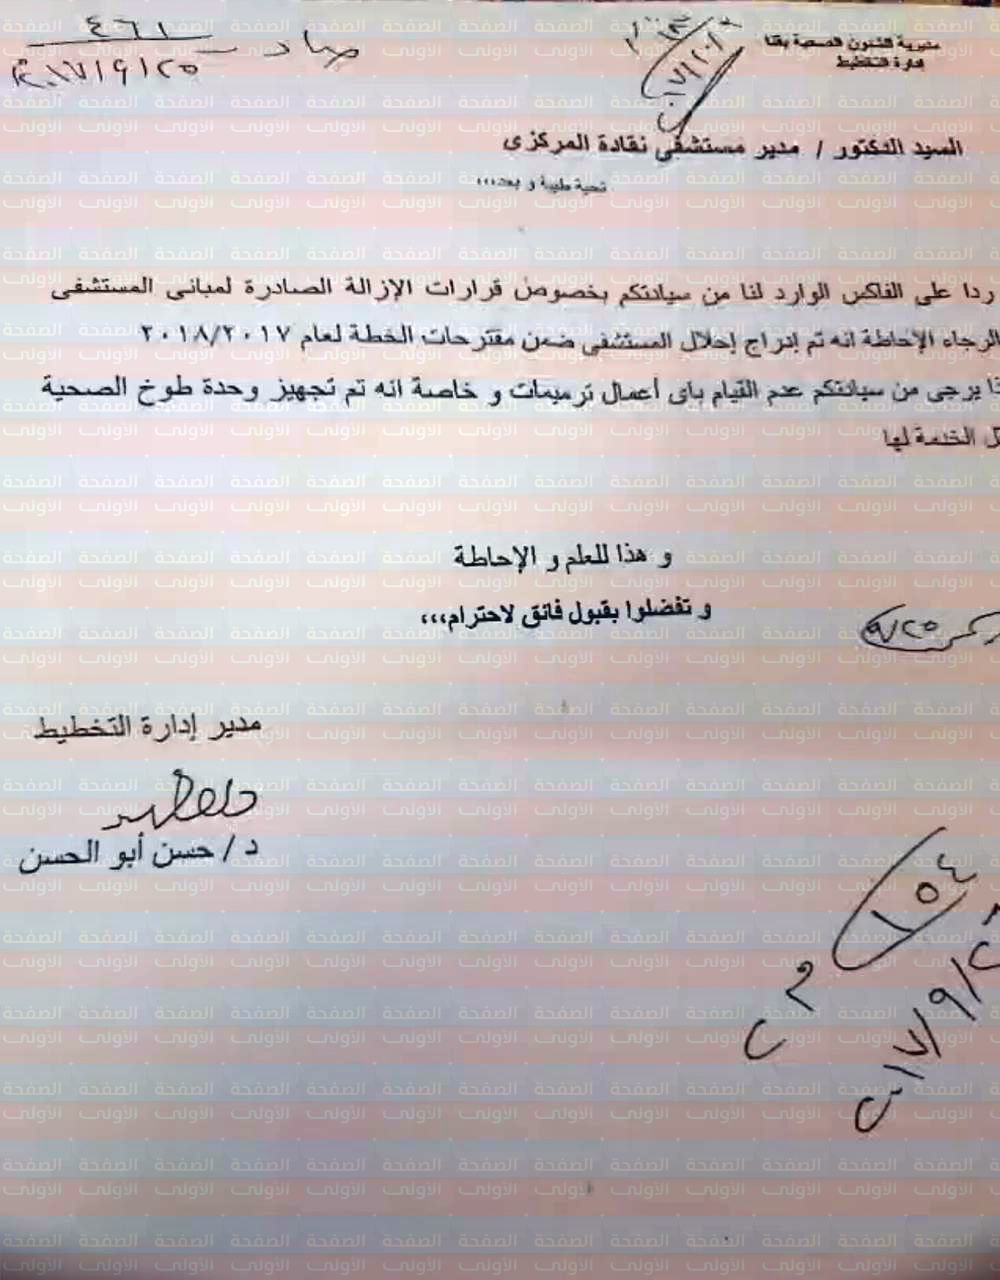 مديرية الشئون الصحية بقنا
إدارة التخطيط
صادر ٤٦١
٢٠١٧/٩/٢٥
السيد الدكتور / مدير مستشفى نقادة المركزى
تحية طيبة و بعد،،،
ردا على الفاكس الوارد لنا من سيادتكم بخصوص قرارات الإزالة الصادرة لمبانى المستشفى
الرجاء الإحاطة انه تم إدراج إحلال المستشفى ضمن مقترحات الخطة لعام ٢٠١٨/٢٠١٧
يرجى من سيادتكم عدم القيام باى أعمال ترميمات و خاصة انه تم تجهيز وحدة طوخ الصحية
الخدمة لها
و هذا للعلم و الإحاطة
و تفضلوا بقبول فائق لاحترام،،،
٩/٢٥
مدير إدارة التخطيط
د / حسن أبو الحسن
١٥٤
الصفحة الأولى